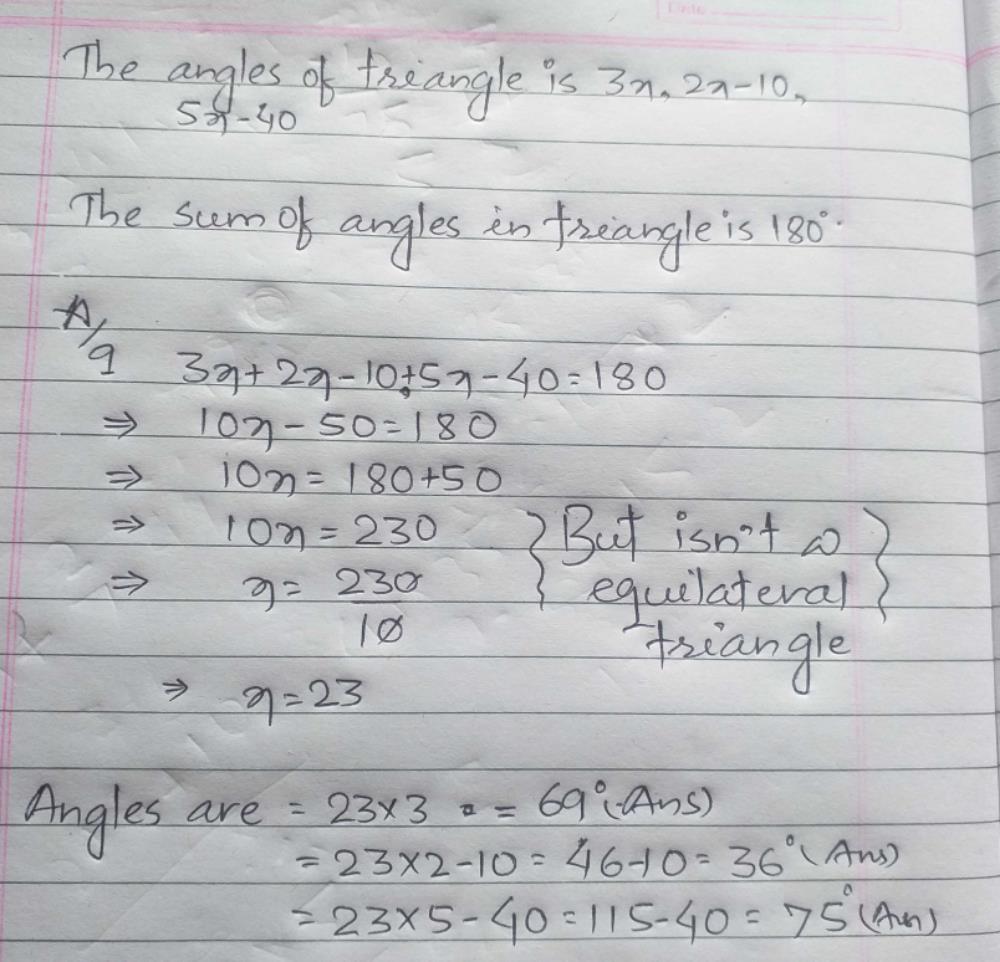 The angles of triangle is 3x, 2x-10,
5x-40
The sum of angles in triangle is 180°.
A/q
3x+2x-10+5x-40=180
⇒ 10x-50=180
⇒ 10x=180+50
⇒ 10x=230
⇒ x=230/10
⇒ x=23
{But isn't a
equilateral
triangle}
Angles are = 23×3 = = 69° (Ans)
= 23×2-10=46-10=36° (Ans)
= 23×5-40=115-40=75° (Ans)